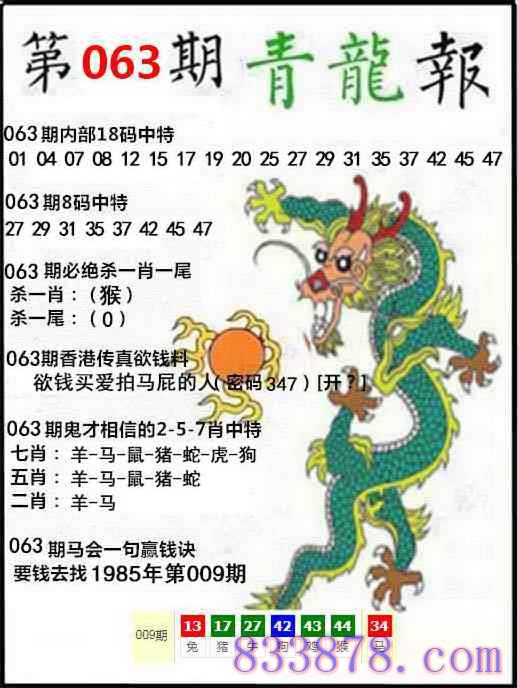 第063期青龍報
063期内部18码中特
01 04 07 08 12 15 17 19 20 25 27 29 31 35 37 42 45 47
063期8码中特
27 29 31 35 37 42 45 47
063期必绝杀一肖一尾
杀一肖：（猴）
杀一尾：（0）
063期香港传真欲钱料
欲钱买爱拍马屁的人（密码347）[开？]
063期鬼才相信的2-5-7肖中特
七肖：羊-马-鼠-猪-蛇-虎-狗
五肖：羊-马-鼠-猪-蛇
二肖：羊-马
063期马会一句赢钱诀
要钱去找1985年第009期
009期 13 17 27 42 43 44 34
兔 猪 牛 狗 鸡 猴 马
833878.com